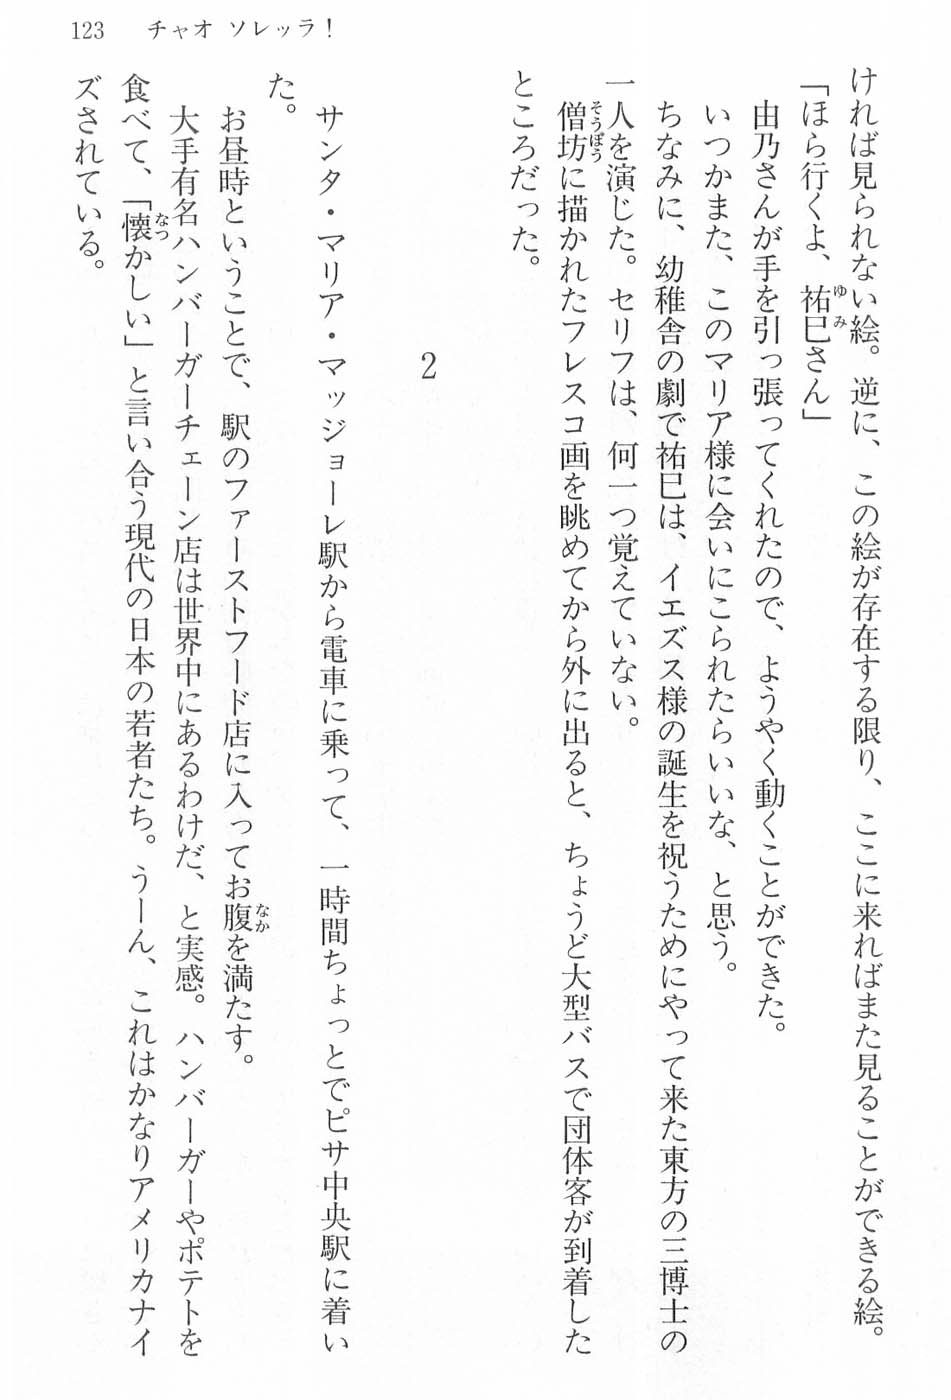 123　チャオ ソレッラ！
ければ見られない絵。逆に、この絵が存在する限り、ここに来ればまた見ることができる絵。
「ほら行くよ、祐巳さん」
由乃さんが手を引っ張ってくれたので、ようやく動くことができた。
いつかまた、このマリア様に会いにこられたらいいな、と思う。
ちなみに、幼稚舎の劇で祐巳は、イエズス様の誕生を祝うためにやって来た東方の三博士の
一人を演じた。セリフは、何一つ覚えていない。
僧坊に描かれたフレスコ画を眺めてから外に出ると、ちょうど大型バスで団体客が到着した
ところだった。
2
サンタ・マリア・マッジョーレ駅から電車に乗って、一時間ちょっとでピサ中央駅に着い
た。
お昼時ということで、駅のファーストフード店に入ってお腹を満たす。
大手有名ハンバーガーチェーン店は世界中にあるわけだ、と実感。ハンバーガーやポテトを
食べて、「懐かしい」と言い合う現代の日本の若者たち。うーん、これはかなりアメリカナイ
ズされている。